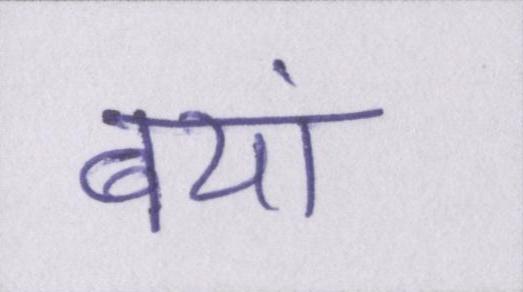 बयां